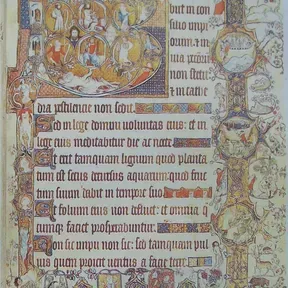 B
buit in con
silio impi
orum. et in
via pctōrū
non stetit
et in cathe
dra pestilencie non sedit.
Sed in lege domini voluntas eius: et in
lege eius meditabitur die ac nocte
Et erit tamquam lignum quod planta
tum est secus decursus aquarum quod fruc
tum suum dabit in tempore suo
Et folium eius non defluet: et omnia q
cumq; faciet prosperabuntur.
Non sic impii non sic: sed tamquam pul
uis quem proicit ventus a facie terre